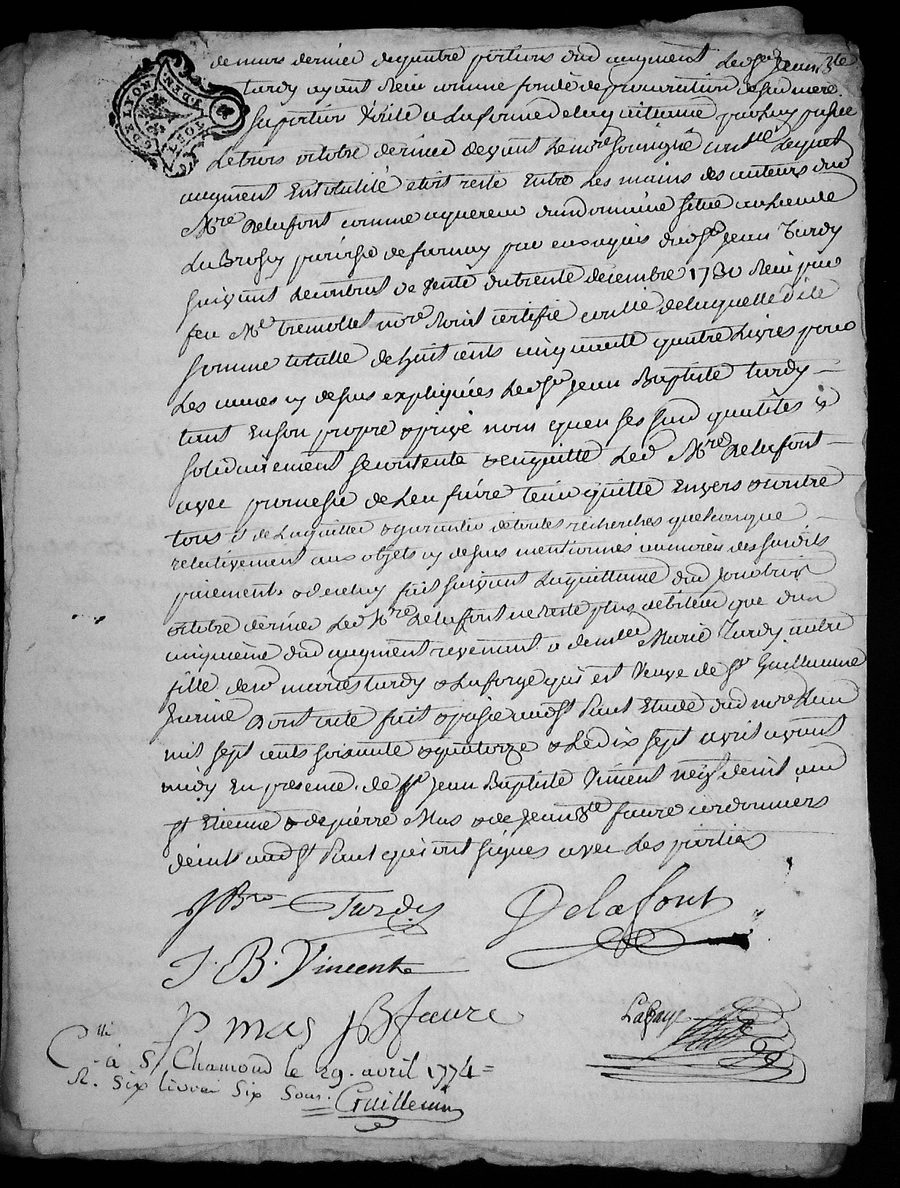 de mars dernier de quatre portions dud augment Led Sr Jean Bte
turdy ayant Reçu comme fondé de procuration de sa mere
sa portion Virile a La forme de la quittance par Luy passée
Le trois octobre dernier devant Le nore soussigné Lequel
augment En totalité etoit resté Entre Les mains des auteurs dud
Mre Delafont comme aquereur d'un domaine situé au Lieu de
La Brosse parroisse de farnay par eux aquis dud Sr Jean Turdy
suivant Le contrat de Vente du trente decembre 1730 Reçu par
feu Me tremollet nore de laquelle d'ite
somme totalle de huit cents cinquante quatre Livres pour
Les causes cy dessus expliquées Led Sr Jean Baptiste turdy
tant En son propre & privé nom qu'en ses sud qualités &
solidairement se contente & en quitte Led Mre Delafont
avec promesse de L'en faire tenir quitte Envers & contre
tous & de L'aquitter & garantir de toutes recherches quelconques
relativement aux objets cy dessus mentionnés au moïen des susdits
paiements & de celuy fait suivant La quittance dud jour trois
octobre dernier Led Mre Delafont ne reste plus debiteur que d'un
cinquieme dud augment revenant a demlle Marie Turdy autre
fille des maries turdy & Laforge qui est Veuve de Sr Guillaume
Dont acte fait & passé aud St Paul Etude dud nore L'an
mil sept cents soixante & quatorze & Le dix sept avril avant
midy En presence de Sr Jean Baptiste Vincent neg de
St Etienne & de pierre Mas & de Jean Bte faure cordonniers
aud St Paul qui ont signés avec Les parties
JB Turdy
Delafont
J. B. Vincent
P mas JB faure
Lafaye
Clli
à St Chamond le 29. avril 1774 =
R. Six livres Six Sous. =